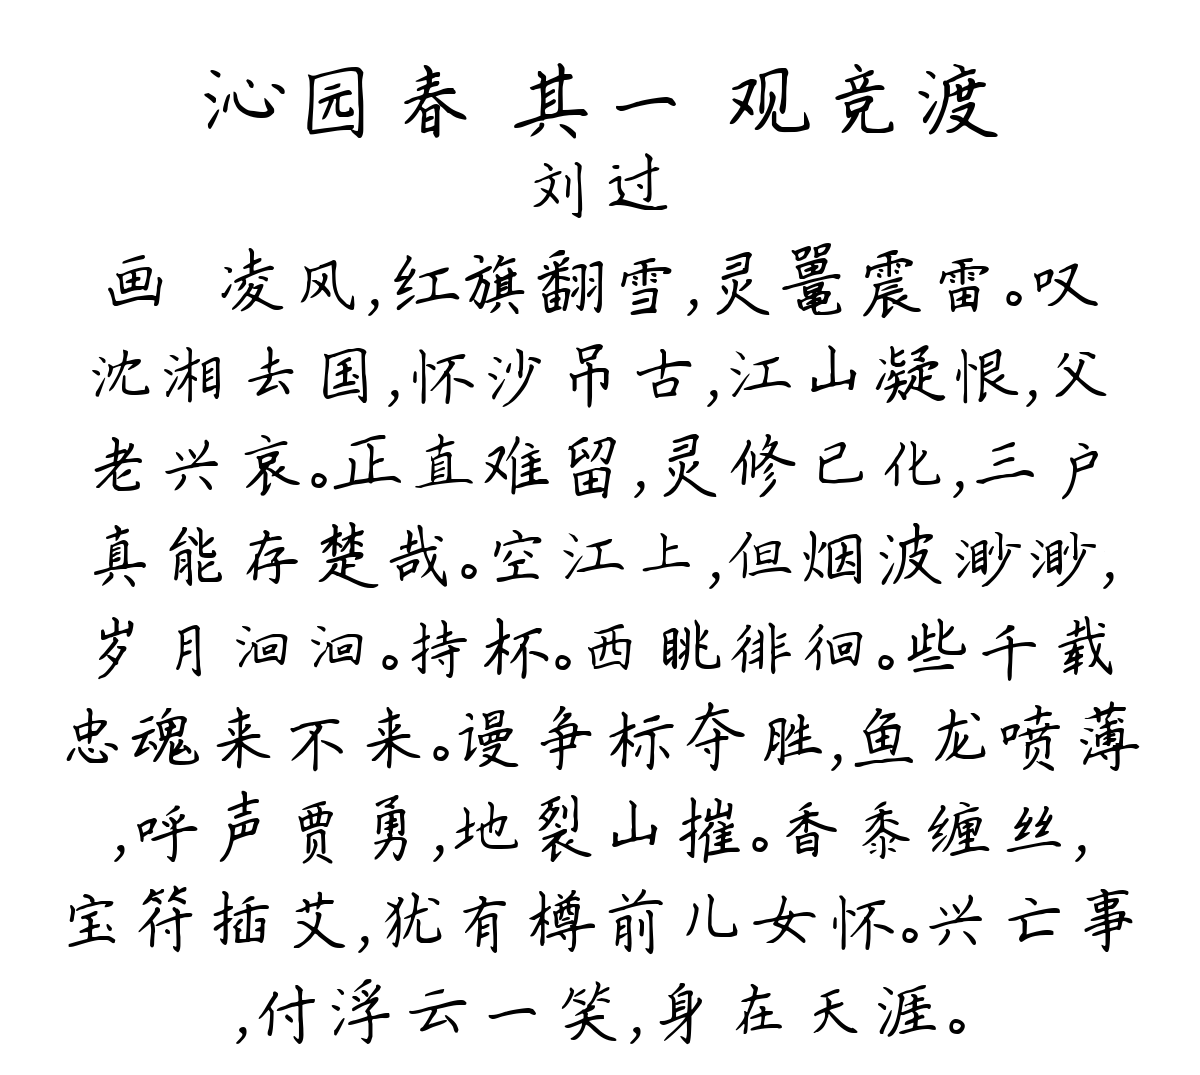 沁园春 其一 观竞渡
刘过
画 凌风,红旗翻雪,灵鼍震雷。叹
沈湘去国,怀沙吊古,江山凝恨,父
老兴哀。正直难留,灵修已化,三户
真能存楚哉。空江上,但烟波渺渺,
岁月洄洄。持杯。西眺徘徊。些千载
忠魂来不来。谩争标夺胜,鱼龙喷薄
,呼声贾勇,地裂山摧。香黍缠丝,
宝符插艾,犹有樽前儿女怀。兴亡事
,付浮云一笑,身在天涯。